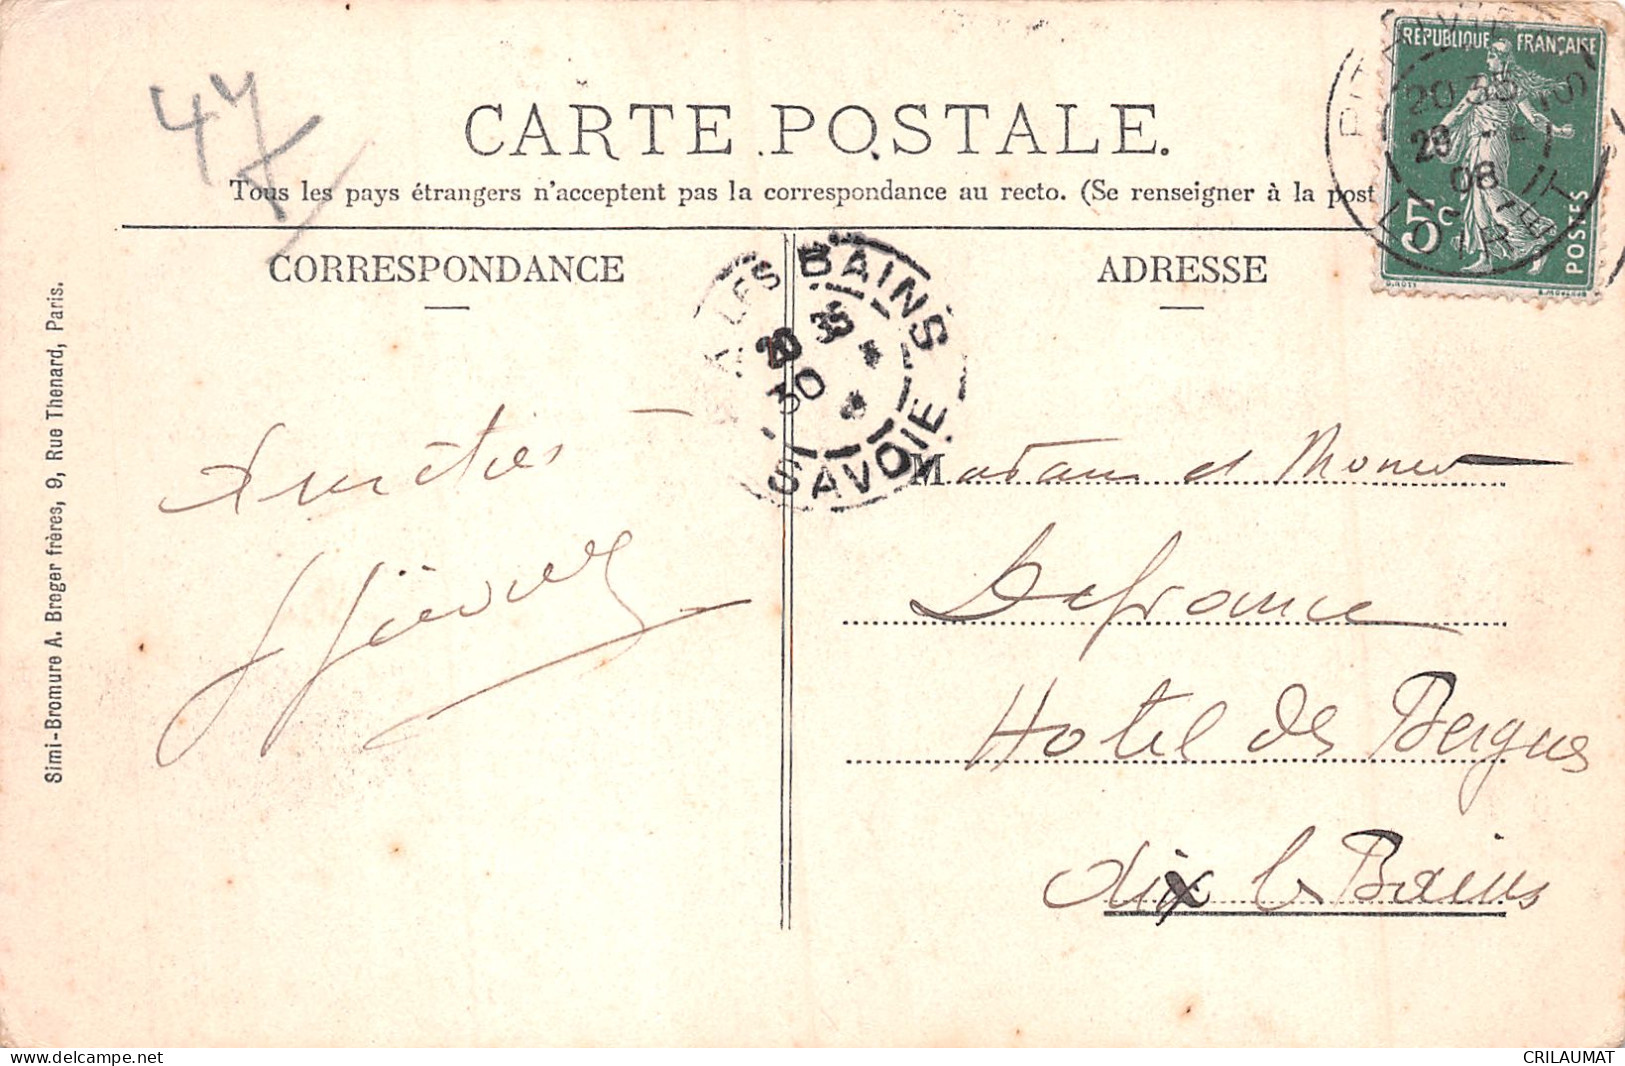 47
CARTE POSTALE.
Tous les pays étrangers n'acceptent pas la correspondance au recto. (Se renseigner à la post
CORRESPONDANCE
ADRESSE
REPUBLIQUE FRANÇAISE
5c
POSTES
20 35
08
LOIRET
LES BAINS
20 35
30
SAVOIE
Simi-Bromure A. Breger frères, 9, Rue Thenard, Paris.
Amitiés
Madame et Monsieur
Defrance
Hotel des Bergues
Aix les Bains
CRILAUMAT